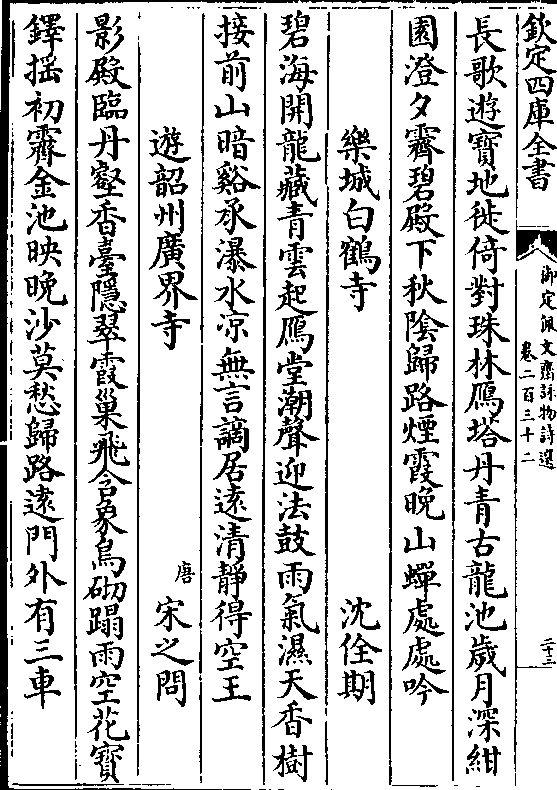 欽定四庫全書
御定佩文齋詠物詩選
卷二百三十二
二十三
長歌遊寶地徙倚對珠林鴈塔丹青古龍池歲月深紺
園澄夕霽碧殿下秋陰歸路煙霞晚山蟬處處吟
樂城白鶴寺
沈佺期
碧海開龍藏青雲起鴈堂潮聲迎法鼓雨氣濕天香樹
接前山暗谿承瀑水凉無言謫居遠清靜得空王
遊韶州廣界寺
唐 宋之問
影殿臨丹壑香臺隱翠霞巢飛含象鳥砌蹋雨空花寶
鐸揺初霽金池映晚沙莫愁歸路遠門外有三車